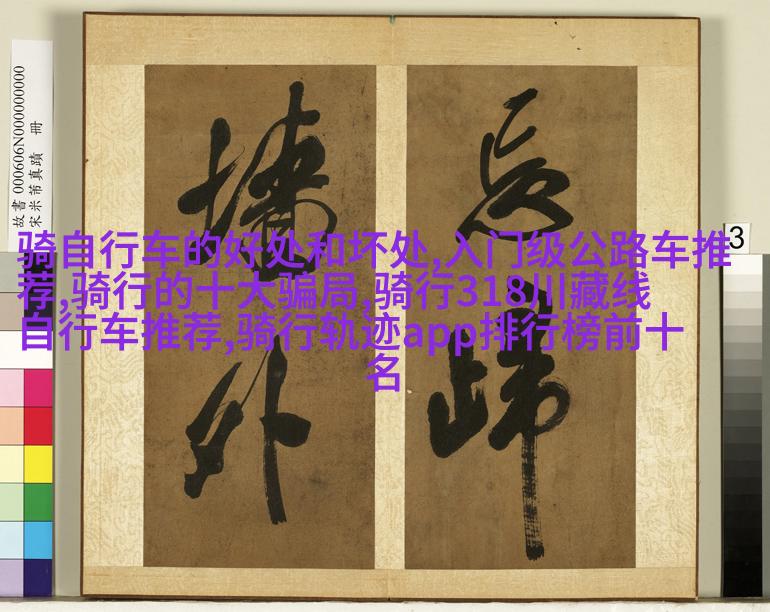 骑自行车的好处和坏处,入门级公路车推
荐,骑行的十大骗局,骑行318川藏线
自行车推荐,骑行轨迹app排行榜前十
名
故書 000606N000000000
宋米芾真蹟 冊
3
忘歸
墙外